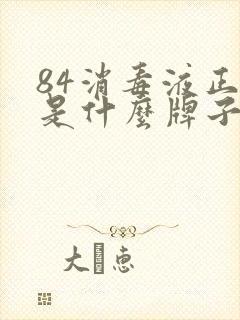 84消毒液正
是什麼牌子
大 惠